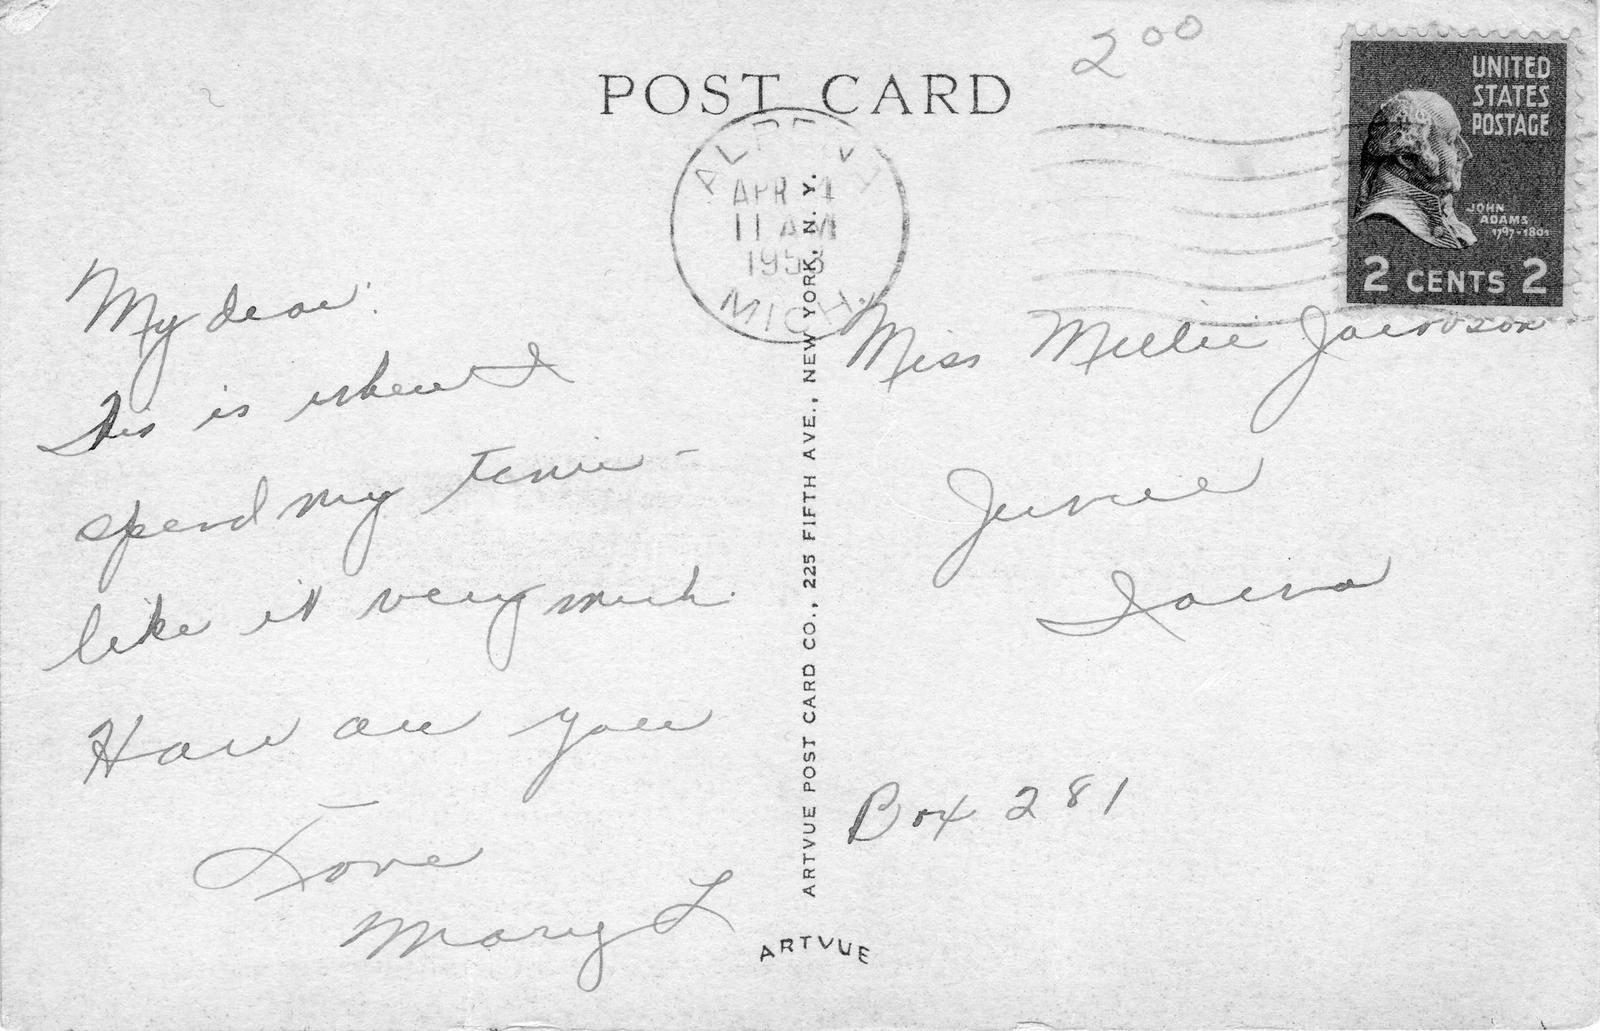 2 00
POST CARD
UNITED
STATES
POSTAGE
JOHN
ADAMS
1797-1801
2 CENTS 2
APR 4
11 AM
1953
MICH.
My dear:
This is where I
spend my time -
like it very much.
How are you
Love
Mary L
Miss Millie Jacobson
Iowa
Box 281
ARTVUE POST CARD CO., 225 FIFTH AVE., NEW YORK, N. Y.
ARTVUE